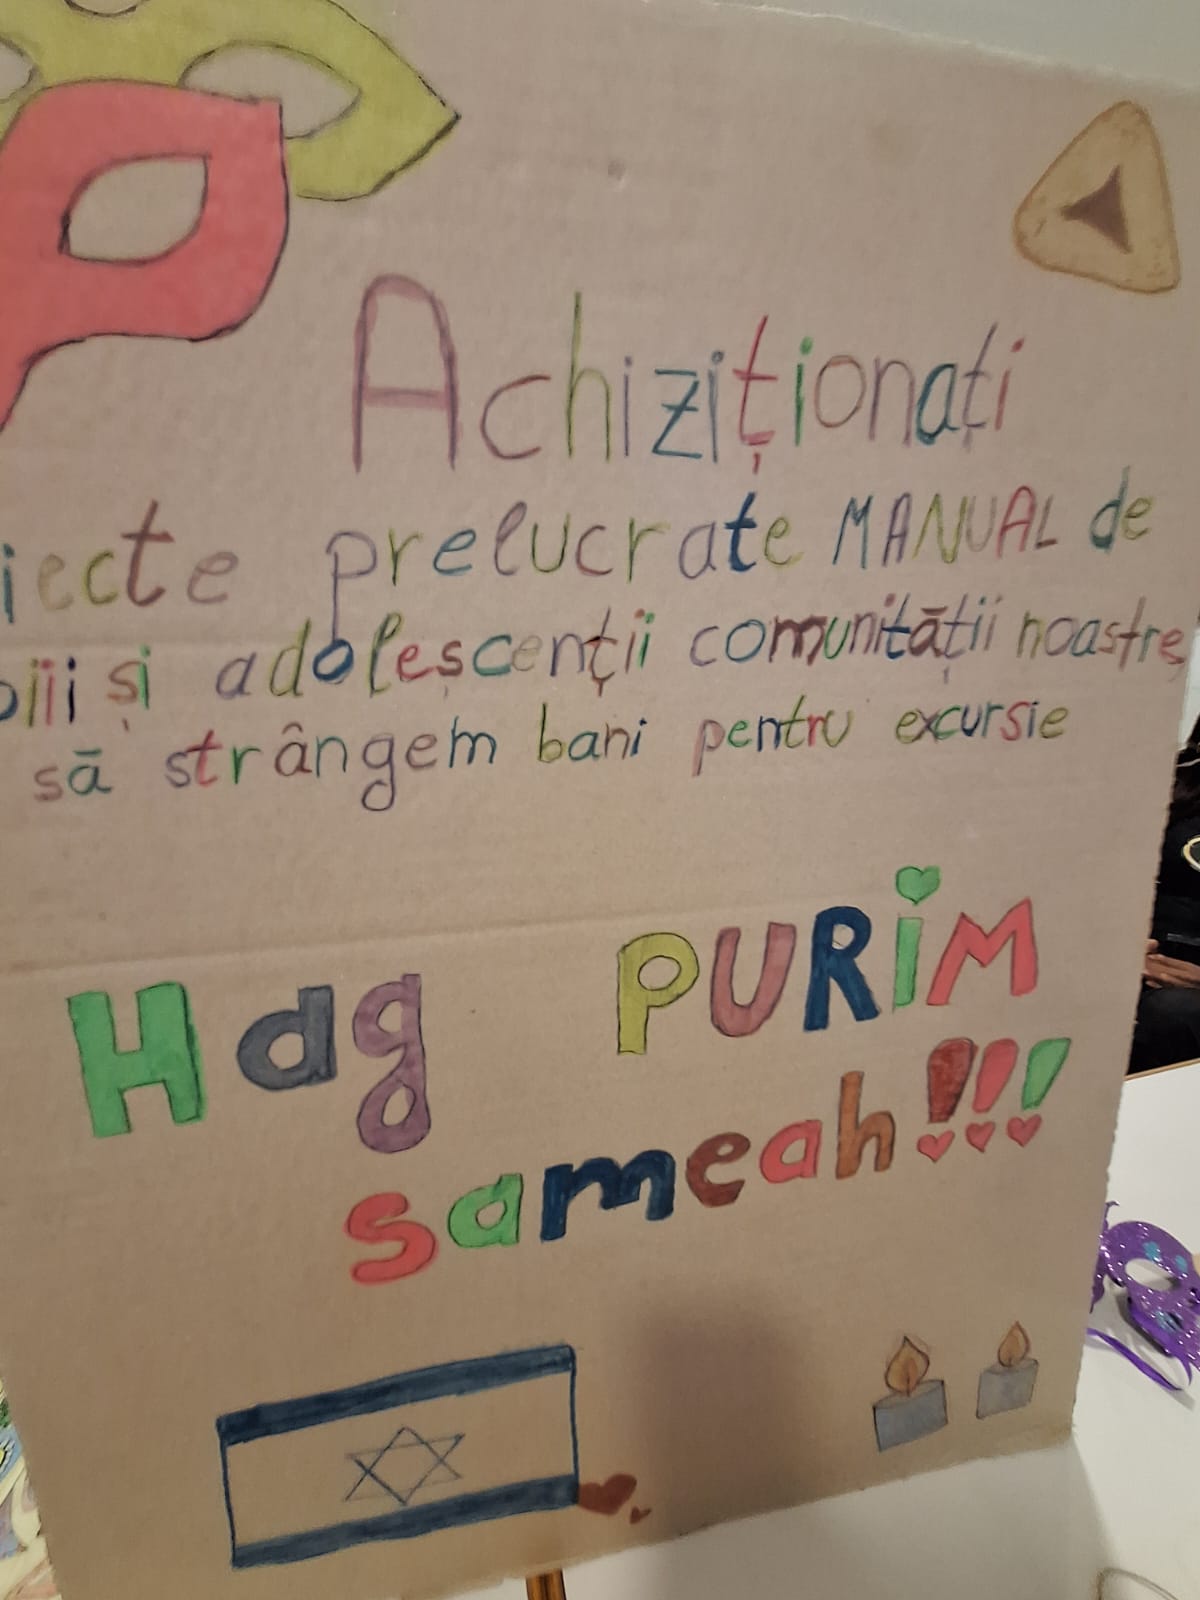 Achiziționați
iecte prelucrate MANUAL de
piii și adolescenții comunității noastre
să strângem bani pentru excursie
Hag PURiM
sameah!!!